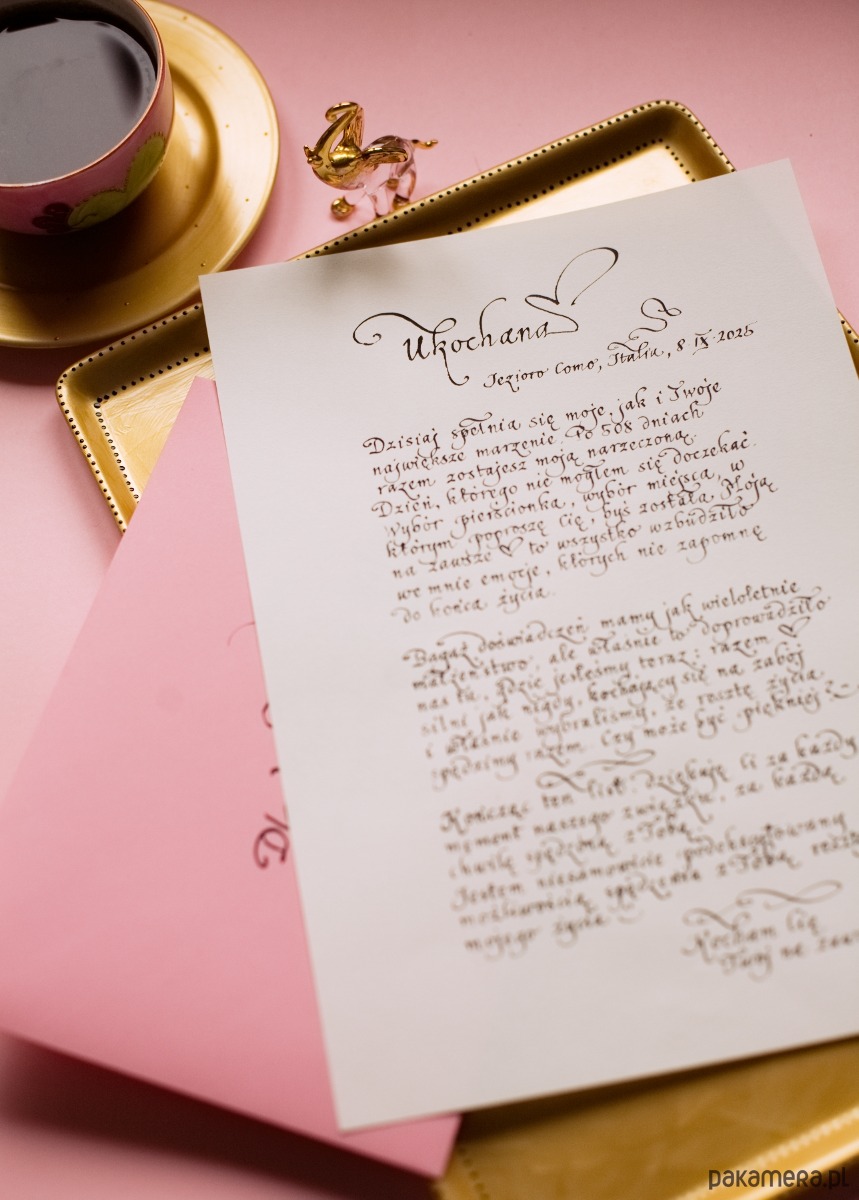 Ukochana
Jezioro Como, Italia, 8 IX 2025
Dzisiaj spełnia się moje, jak i Twoje
największe marzenie. Po 508 dniach
razem zostajesz moją narzeczoną.
Dzień, którego nie mogłem się doczekać.
Wybór pierścionka, wybór miejsca, w
którym poproszę Cię, byś została Moją
na zawsze to wszystko wzbudziło
we mnie emocje, których nie zapomnę
do końca życia.
Bagaż doświadczeń mamy jak wieloletnie
małżeństwo, ale właśnie to doprowadziło
nas tu, gdzie jesteśmy teraz: razem
silni jak nigdy, kochający się na zabój
i właśnie wybraliśmy, że resztę życia
spędzimy razem. Czy może być piękniej?
Kończąc ten list dziękuję Ci za każdy
moment naszego związku, za każdą
chwilę spędzoną z Tobą.
Jestem niesamowicie podekscytowany
możliwością spędzenia z Tobą
mojego życia.
Kocham Cię
Twój na
pakamera.pl